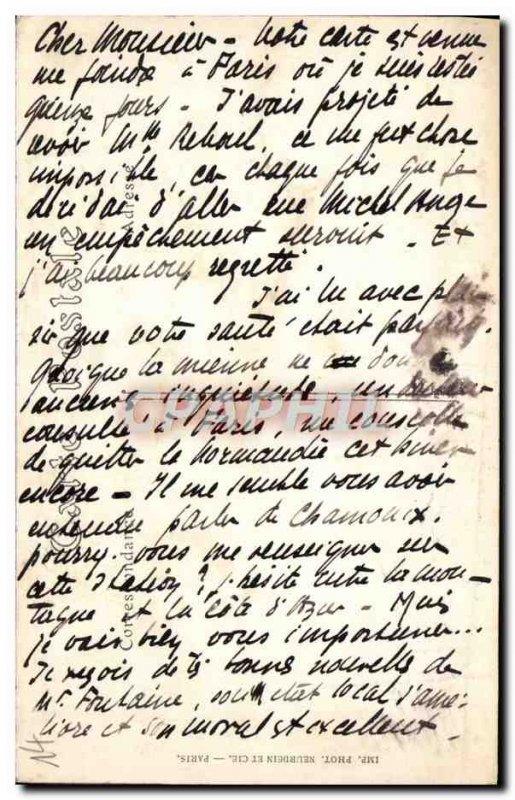 Cher Monsieur – Votre carte est venue
me joindre à Paris où je suis resté
quinze jours – J'avais projeté de
avoir Mme Reboul, ce me fut chose
impossible, car chaque fois que je
décidai d'aller rue Michel Ange
un empêchement survint. Et
j'ai beaucoup regretté.
J'ai lu avec plai-
sir que votre santé était parfaite.
Quoique la mienne ne me donne
aucune inquiétude, un docteur
consulté à Paris, me conseille
de quitter la Normandie cet hiver
encore – Il me semble vous avoir
entendu parler de Chamonix.
pourrez vous me renseigner sur
cette station? j'hésite entre la mon-
tagne et la Côte d'Azur – Mais
je vais bien vous importuner...
Je reçois de ts bonnes nouvelles de
Mr Fontaine, son état local s'amé-
liore et son moral est excellent –
14
Carte Postale
Correspondance
Adresse
CPAPHIL
IMP. PHOT. NEURDEIN ET CIE. — PARIS.